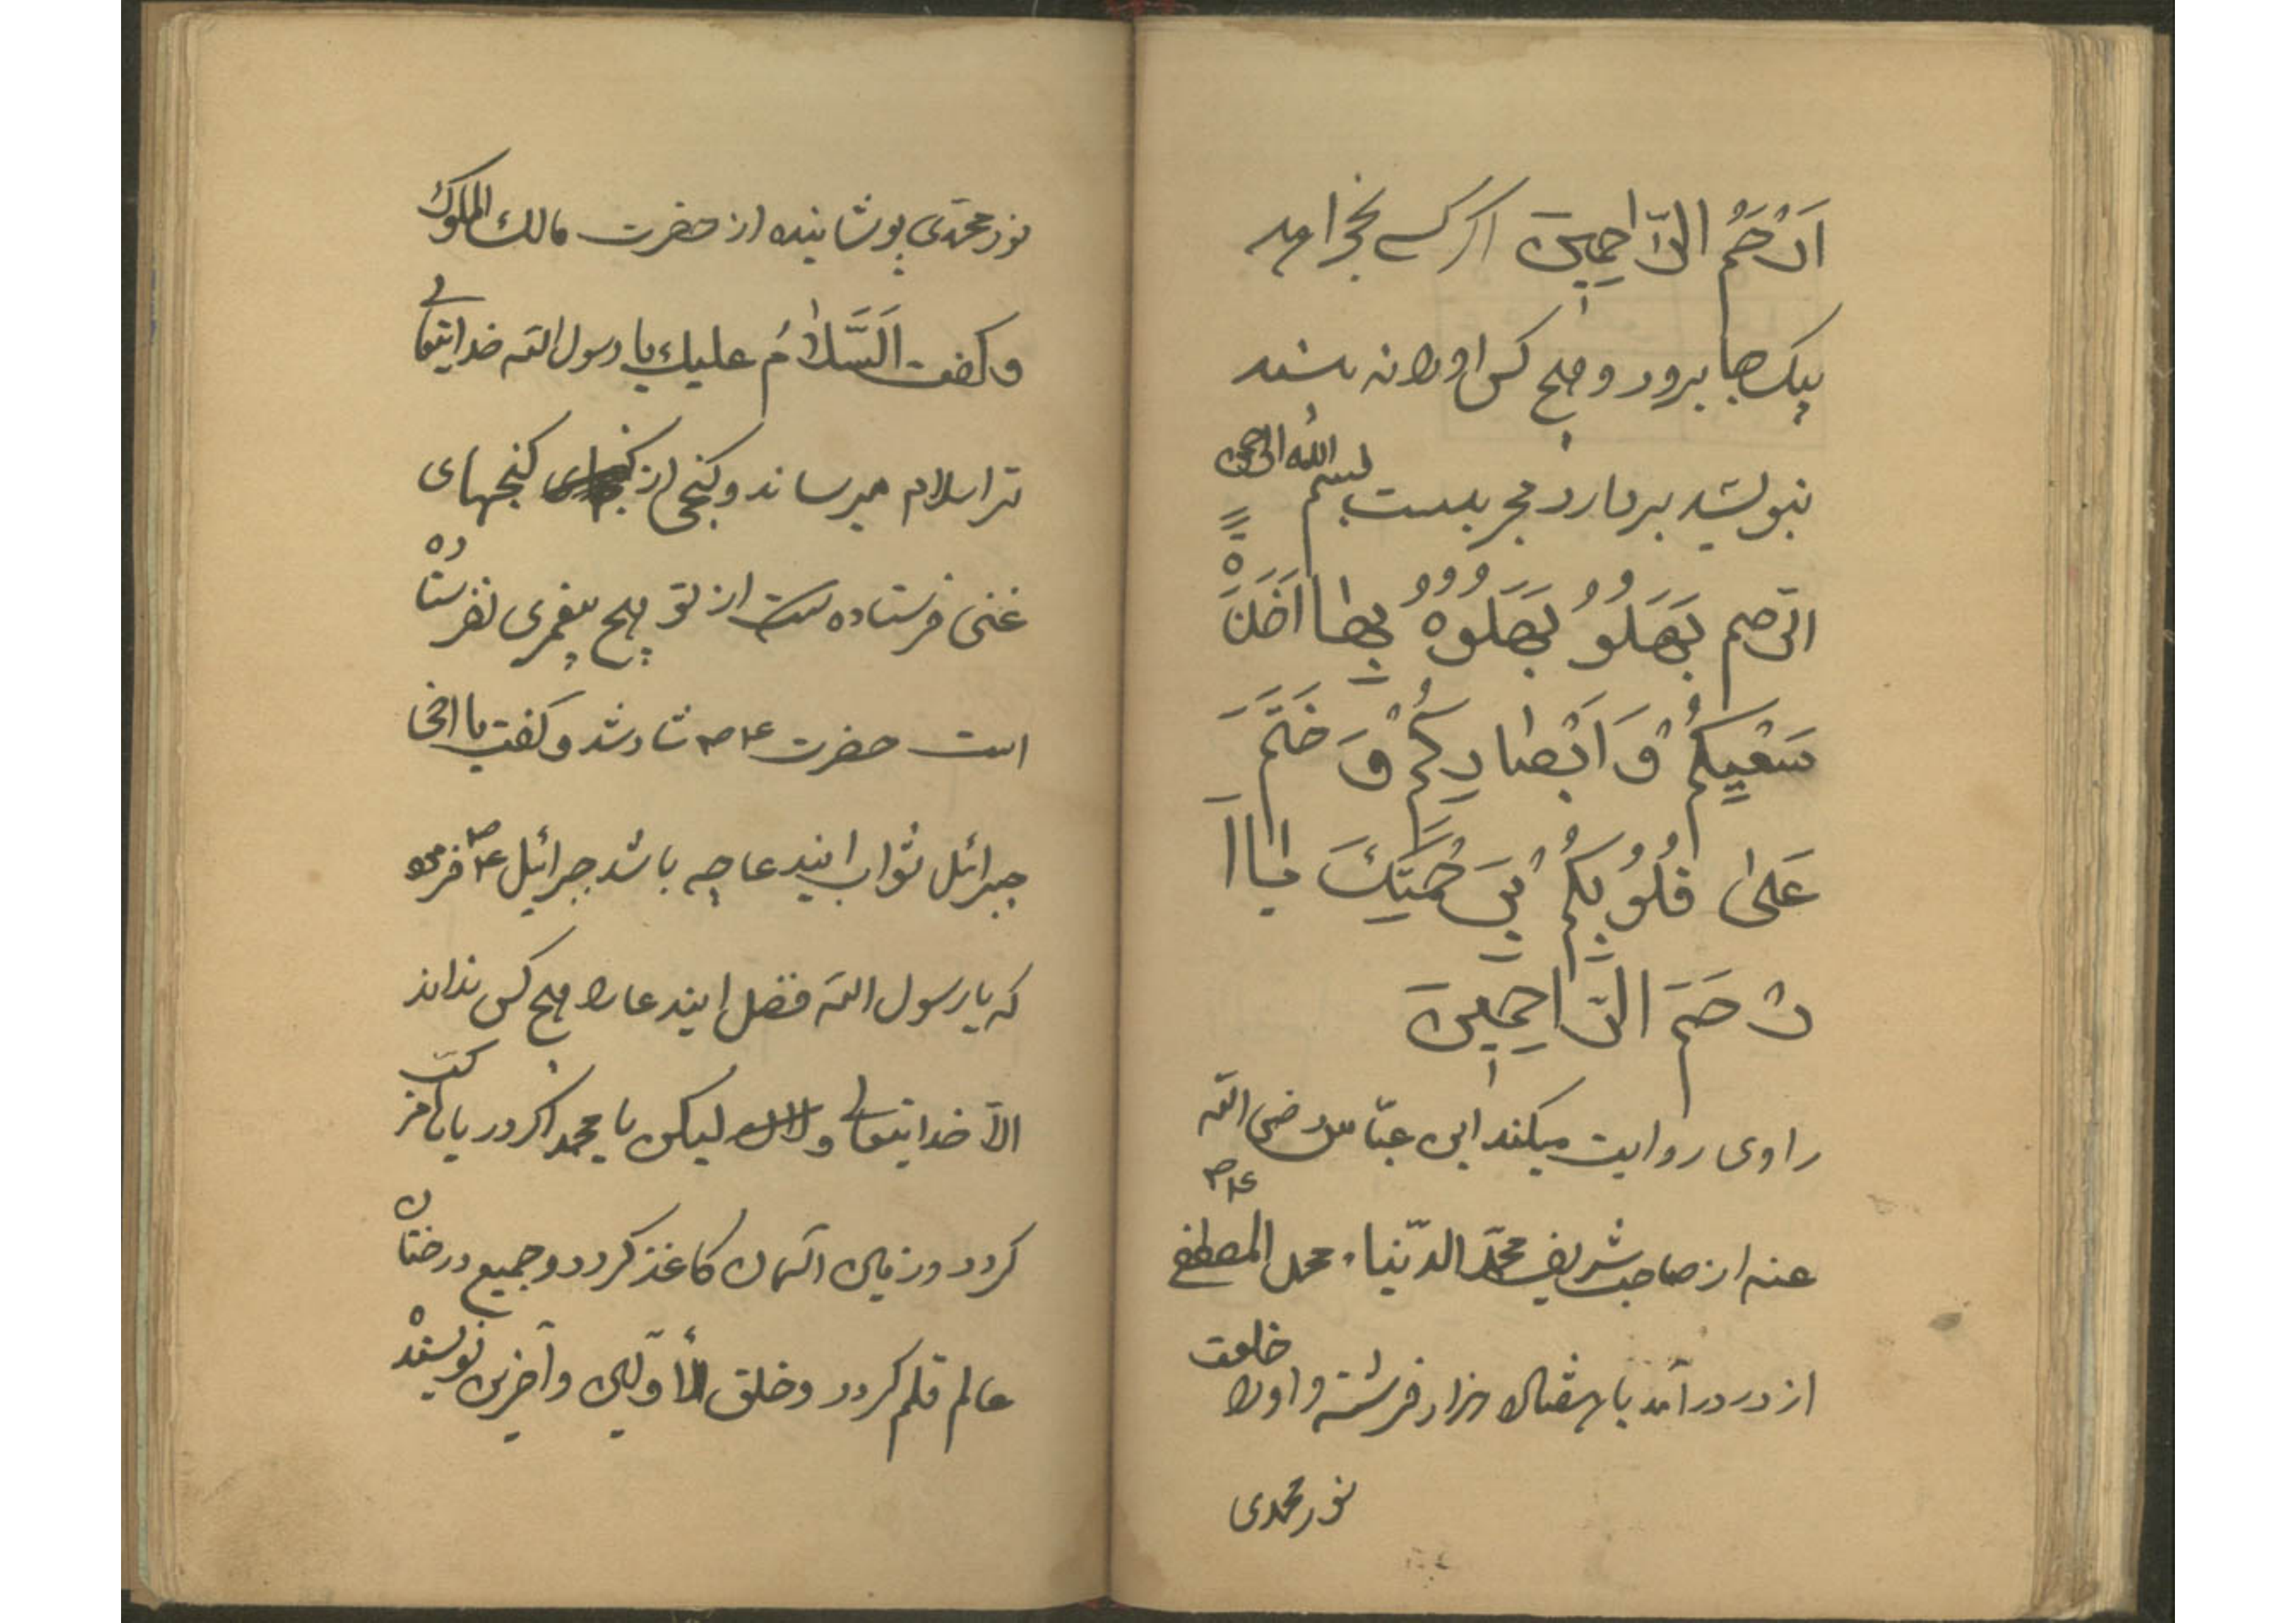 اَرْحَمُ الرَّاحِمِینَ اکر کسے بخواهد
بیک جا برود و هیچ کس اورا نه بیند
بنویسد بردارد مجربست بسم الله الرحمن
الرحیم بَهَلُو بَهَلُوهُ بِها اَخَذَ
سَمْعِیکُمْ وَ اَبْصارِکُمْ وَ خَتَمَ
عَلیٰ قُلُوبِکُمْ بِرَحْمَتِکَ یا اَ
رْحَمَ الرَّاحِمِینَ
راوی روایت میکند ابن عبّاس رضی اللّه
عنه از صاحب شریف محمّد الدّنیا محمد المصطفی ع‍ام
از در درآمد با هفتاد هزار فرشته و اورا خلعت
نور محمدی
نور محمّدی پوشانیده از حضرت مالک الملوک
و کفت اَلسَّلامُ علیک یا رسول اللّه خدایتعالی
ترا سلام میرساند و کنجی از کنجهای
غنی فرستاده است از تو هیچ پیغمبری نفرستاده
است حضرت شاد شد و کفت یا اخی
جبرائل ثواب ایندعا چه باشد جبرائیل فرمود
که یا رسول اللّه فضل ایندعا را هیچ کس نداند
الّا خدایتعالی و لیکن یا محمد اکر دریاها مرکّب
کردد و زمین آسمان کاغذ کردد و جمیع درختان
عالم قلم کردد و خلق الأوّلین و آخرین نویسند